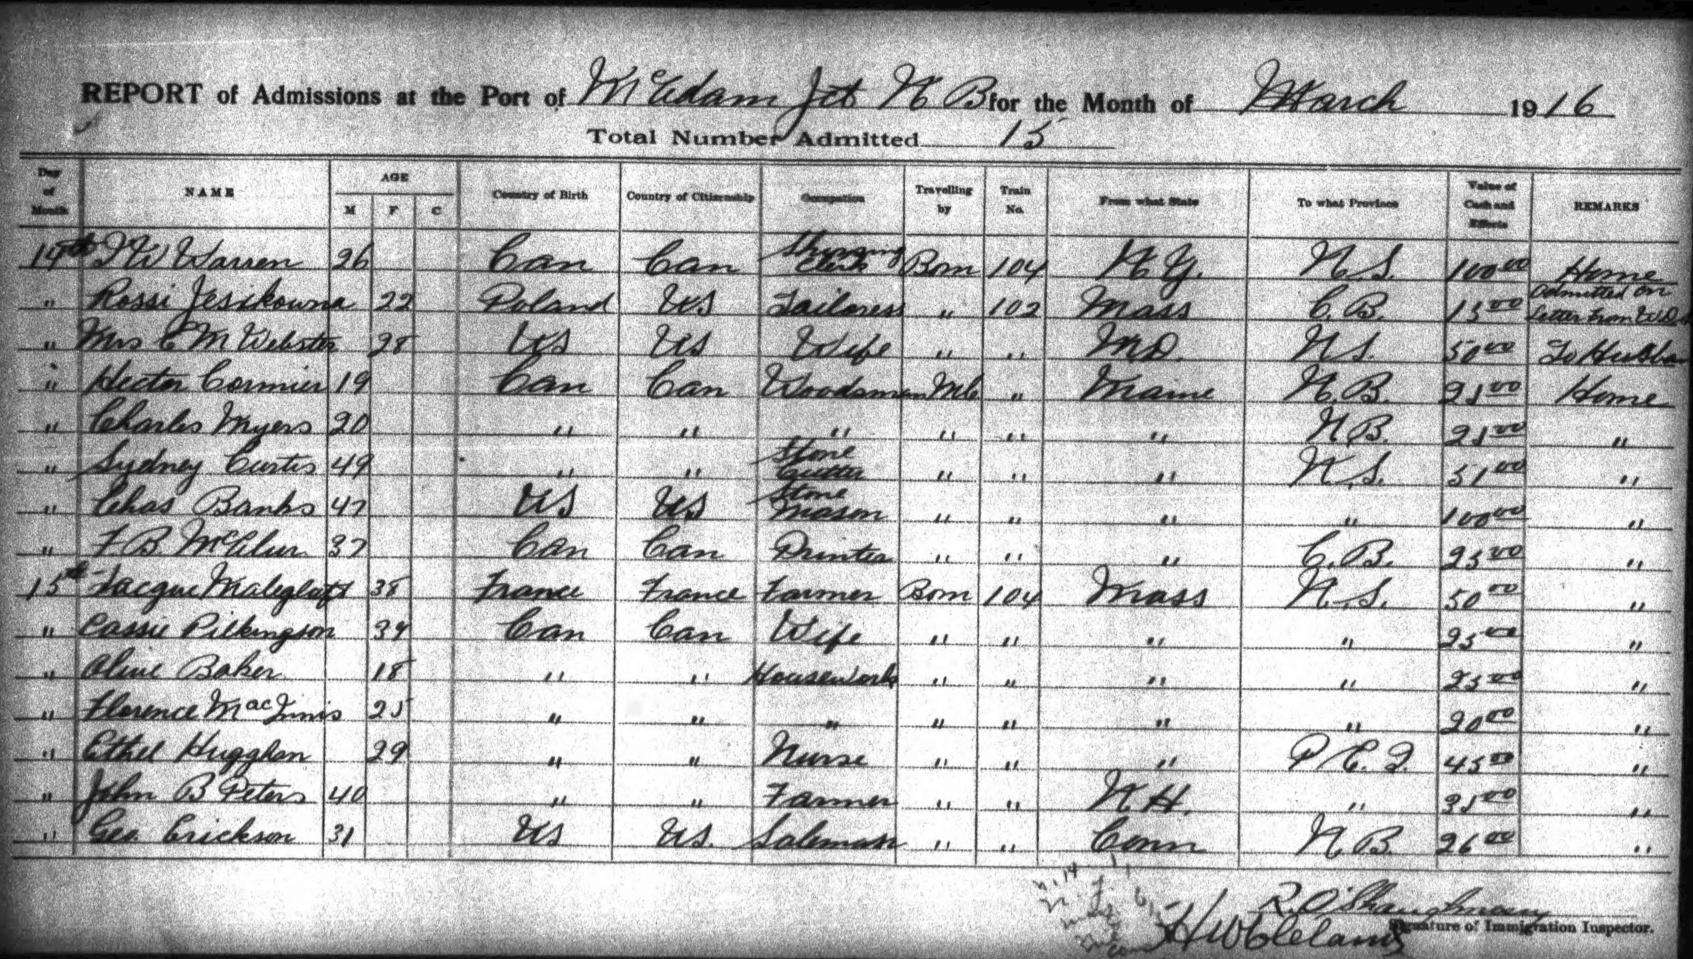 REPORT of Admissions at the Port of McAdam Jct N B for the Month of March 1916
Total Number Admitted 15
Day of Month NAME AGE M F C Country of Birth Country of Citizenship Occupation Travelling by Train No. From what State To what Province Value of Cash and Effects REMARKS
14th W Warren 26 Can Can Clerk Bom 104 N.Y. N.S. 100 00 Home
" Rossi Jesikowna 22 Poland US Tailoress " 102 Mass C.B. 15 00 Admitted on Letter from
" Mrs C M Webster 28 US US Wife " " MD. N.S. 50 00 To Husban
" Hector Cormier 19 Can Can Woodsman MC " Maine N.B. 25 00 Home
" Charles Myers 20 " " " " " " N.B. 25 00 "
" Sydney Curtis 49 " " Stone Cutter " " " N.S. 51 00 "
" Chas Banks 47 US US Stone Mason " " " " 100 00 "
" F B 37 Can Can Printer " " " C.B. 25 00 "
15th Jacque 38 France France Farmer Bom 104 Mass N.S. 50 00 "
" Cassie Pilkingson 34 Can Can Wife " " " " 25 00 "
" Olive Baker 18 " " Housework " " " " 25 00 "
" Florence MacInnis 25 " " " " " " " 20 00 "
" Ethel Hugghan 29 " " Nurse " " " P.E.I. 45 00 "
" John B Peters 40 " " Farmer " " N.H. " 35 00 "
" Geo Erickson 31 US US. Salesman " " Conn N.B. 26 00 "
R. O'Shaughnessy
Signature of Immigration Inspector.